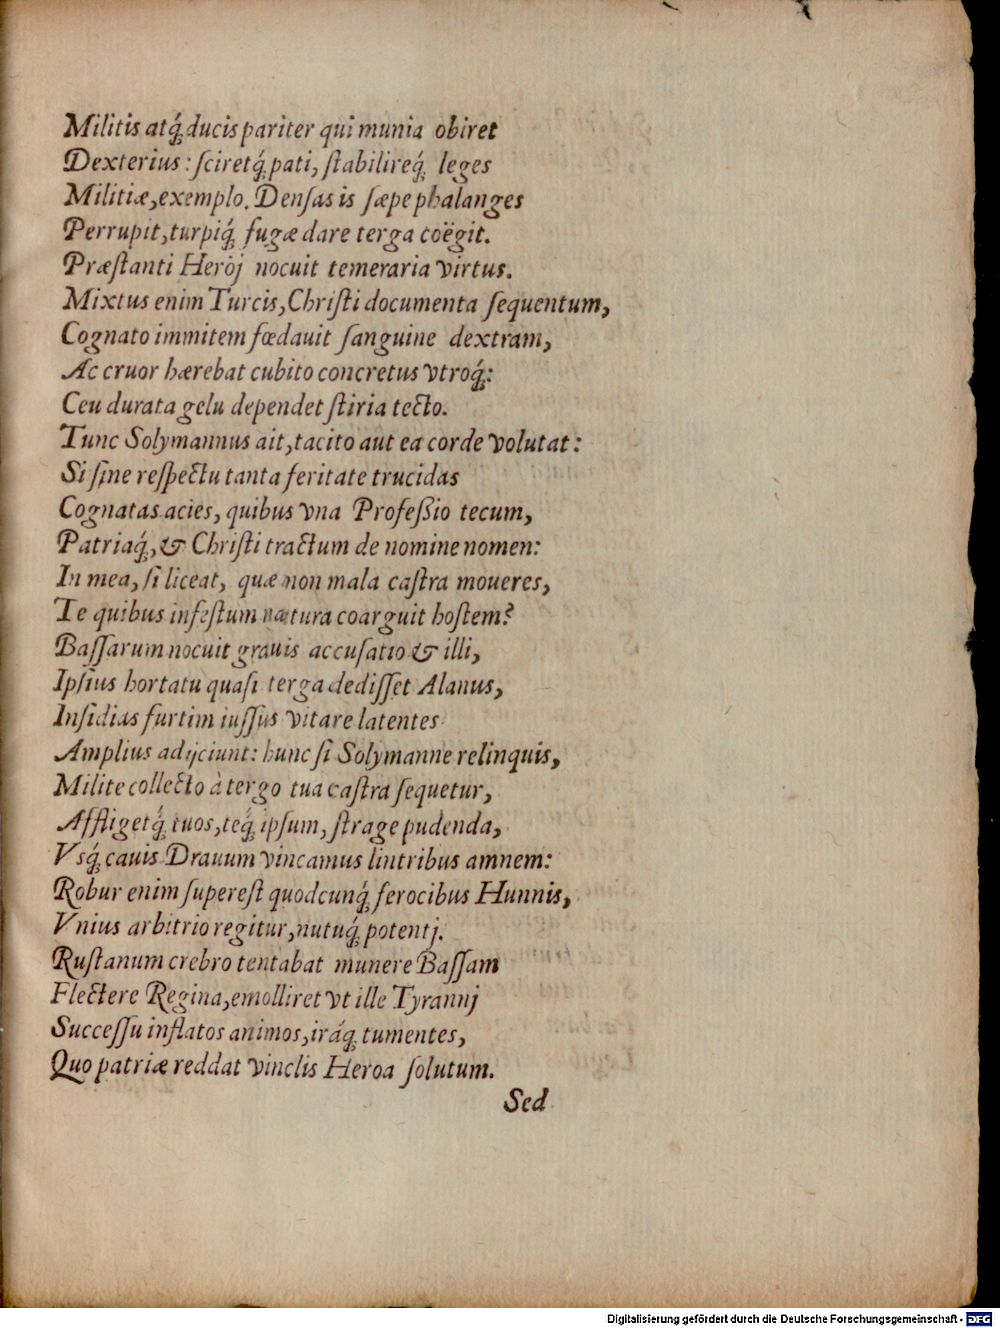 Militis atq́; ducis pariter qui munia obiret
Dexterius: ſciretq́; pati, ſtabilireq́; leges
Militiæ, exemplo. Denſas is ſæpe phalanges
Perrupit, turpiq́; fugæ dare terga coëgit.
Præſtanti Heroj nocuit temeraria virtus.
Mixtus enim Turcis, Chriſti documenta ſequentum,
Cognato immitem fœdauit ſanguine dextram,
Ac cruor hærebat cubito concretus vtroq́;:
Ceu durata gelu dependet ſtiria tecto.
Tunc Solymannus ait, tacito aut ea corde volutat:
Si ſine reſpectu tanta feritate trucidas
Cognatas acies, quibus vna Profeßio tecum,
Patriaq́;, & Chriſti tractum de nomine nomen:
In mea, ſi liceat, quæ non mala caſtra moueres,
Te quibus infeſtum natura coarguit hoſtem?
Baſſarum nocuit grauis accuſatio & illi,
Ipſius hortatu quaſi terga dediſſet Alanus,
Inſidias furtim iuſſus vitare latentes
Amplius adijciunt: hunc ſi Solymanne relinquis,
Milite collecto à tergo tua caſtra ſequetur,
Affligetq́; tuos, teq́; ipſum, ſtrage pudenda,
Vsq́; cauis Drauum vincamus lintribus amnem:
Robur enim ſupereſt quodcunq́; ferocibus Hunnis,
Vnius arbitrio regitur, nutuq́; potentj.
Ruſtanum crebro tentabat munere Baſſam
Flectere Regina, emolliret vt ille Tyrannj
Succeſſu inflatos animos, iráq; tumentes,
Quo patriæ reddat vinclis Heroa ſolutum.
Sed
Digitalisierung gefördert durch die Deutsche Forschungsgemeinschaft - DFG